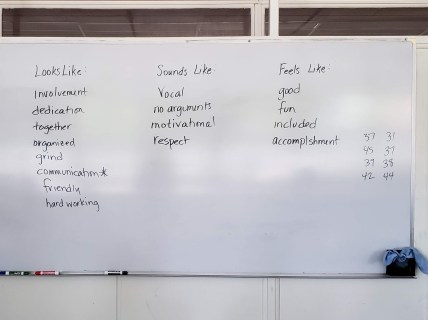 Looks Like:
involvement
dedication
together
organized
grind
communication*
friendly
hard working
Sounds Like:
Vocal
no arguments
motivational
respect
Feels Like:
good
fun
included
accomplishment
57 31
45 37
37 38
42 44